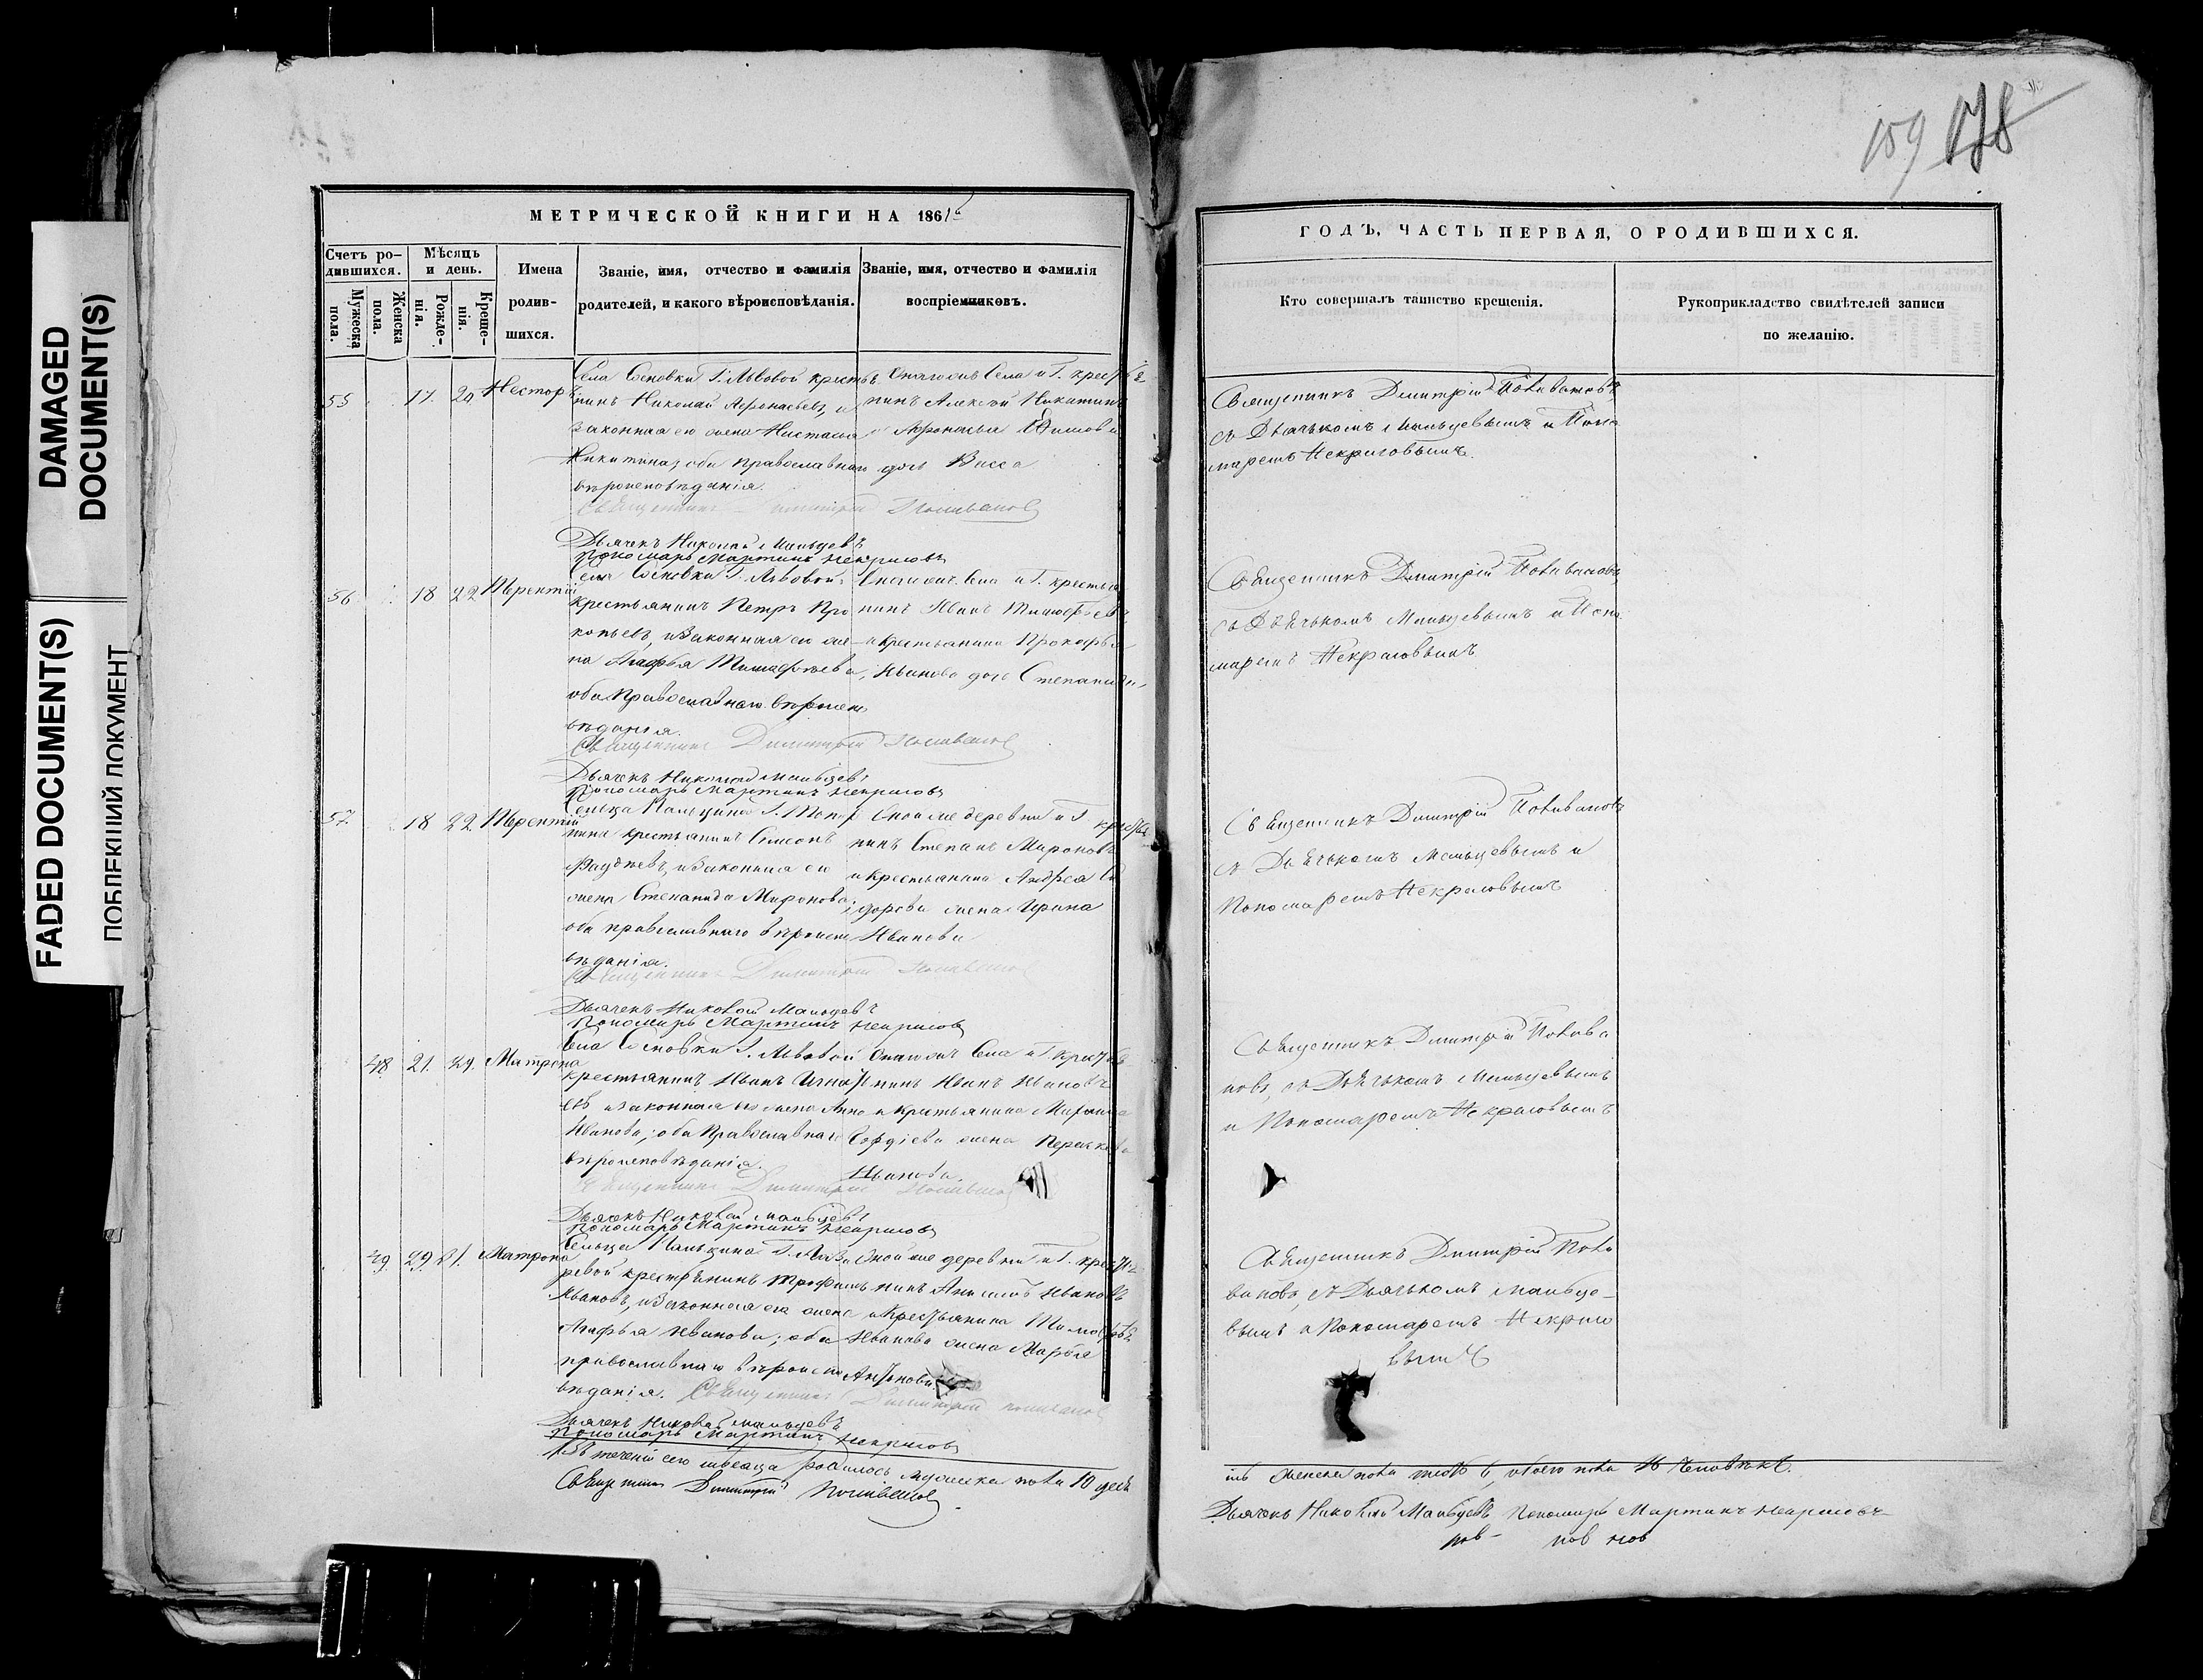 DAMAGED
DOCUMENT(S)
FADED DOCUMENT(S)
ПОБЛЕКШИЙ ДОКУМЕНТ
159 178
МЕТРИЧЕСКОЙ КНИГИ НА 1861
Счетъ ро-
дившихся.
Мѣсяцъ
и день.
Мужеска
пола.
Женска
пола.
Рожде-
нія.
Креще-
нія.
Имена
родив-
шихся.
Званіе, имя, отчество и фамилія
родителей, и какого вѣроисповѣданія.
Званіе, имя, отчество и фамилія
воспріемниковъ.
55 17. 20 Несторъ
Села Сосновки Г. Львовой крестья
нинъ Николай Афонасьевъ и
законная его жена Настасья
Никитина, оба православнаго
вѣроисповѣданія.
Священникъ Димитрій Поливановъ
Дьячекъ Николай Мальцевъ
Пономарь Мартинъ Некрасовъ
Села и Г. крестья
нинъ Алексѣй Никитинъ
и Афонасья Ефимова
дочь Васса
56 18 22 Терентій
Села Сосновки Г. Львовой
крестьянинъ Петръ Про
копьевъ, и законная его же-
на Агафья Тимофѣева,
оба Православнаго вѣроиспо
вѣданія.
Священникъ Димитрій Поливановъ
Дьячекъ Николай Мальцевъ
Пономарь Мартинъ Некрасовъ
Села и Г. крестья
нинъ Иванъ Тимофѣевъ
и крестьянина Прокофья
Иванова дочь Степанида
57. 18 22 Терентій
Сельца Пальцина Г.
крестьянинъ Симеонъ
и законная его
жена Степанида Миронова;
оба православнаго вѣроиспо
вѣданія.
Священникъ Димитрій Поливановъ
Дьячекъ Николай Мальцевъ
Пономарь Мартинъ Некрасовъ
деревни и Г. крестья
нинъ Степанъ Мироновъ
и крестьянина Андрея Си
дорова жена Ирина
Иванова
48 21. 24. Матрона
Села Сосновки Г. Львовой
крестьянинъ Иванъ Игнать
евъ и законная его жена Анна
Иванова; оба Православнаго
вѣроисповѣданія.
Священникъ Димитрій Поливановъ
Дьячекъ Николай Мальцевъ
Пономарь Мартинъ Некрасовъ
Села и Г. крестья
нинъ Иванъ Ивановъ
и крестьянина Михаила
Гордіева жена
Иванова.
49. 29 Матрона
Сельца Пальцина Г.
ревой крестьянинъ Трофимъ
Ивановъ, и законная его жена
Агафья Иванова; оба
православнаго вѣроиспо
вѣданія. Священникъ Димитрій Поливановъ
Дьячекъ Николай Мальцевъ
Пономарь Мартинъ Некрасовъ
деревни и Г. крестья
нинъ Ивановъ
и крестьянина Тимофѣя
Иванова жена Марья
Антонова
Въ теченіи сего мѣсяца родилось мужеска пола 10
Священникъ Димитрій Поливановъ
ГОДЪ, ЧАСТЬ ПЕРВАЯ, О РОДИВШИХСЯ.
Кто совершалъ таинство крещенія.
Рукоприкладство свидѣтелей записи
по желанію.
Священникъ Димитрій Поливановъ
съ Дьячькомъ Мальцевымъ и Поно
маремъ Некрасовымъ.
Священникъ Димитрій Поливановъ
съ Дьячькомъ Мальцевымъ и Поно
маремъ Некрасовымъ
Священникъ Димитрій Поливановъ
съ Дьячькомъ Мальцевымъ и
Пономаремъ Некрасовымъ
Священникъ Димитрій Полива
новъ, съ Дьячькомъ Мальцевымъ
и Пономаремъ Некрасовымъ
Священникъ Димитрій Поли
вановъ, съ Дьячькомъ Мальце-
вымъ и Пономаремъ Некрасо
вымъ
женска пола обоего пола 16 человѣкъ.
Дьячекъ Николай Мальцевъ Пономарь Мартинъ Некрасовъ